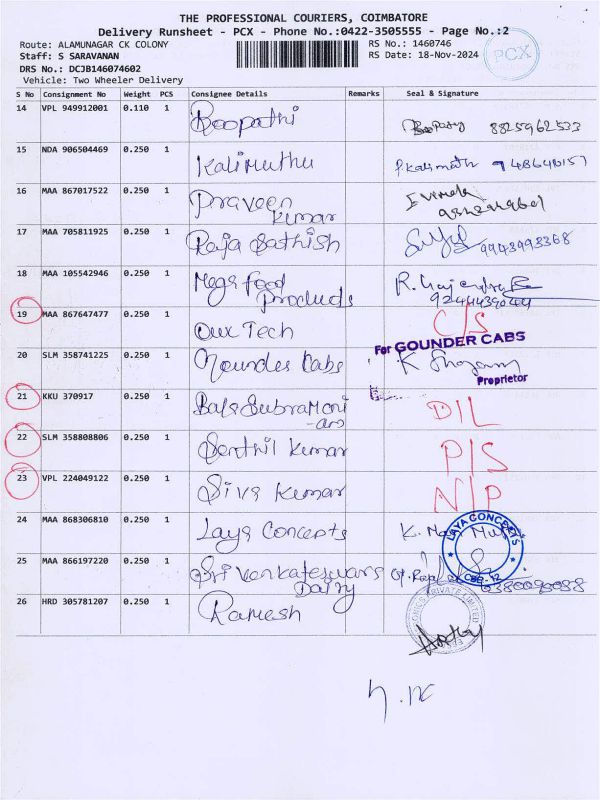 THE PROFESSIONAL COURIERS, COIMBATORE
Delivery Runsheet - PCX - Phone No.:0422-3505555 - Page No.:2
Route: ALAMUNAGAR CK COLONY RS No.: 1460746
Staff: S SARAVANAN RS Date: 18-Nov-2024 PCX
DRS No.: DCJB146074602
Vehicle: Two Wheeler Delivery
S No Consignment No Weight PCS Consignee Details Remarks Seal & Signature
14 VPL 949912001 0.110 1 Boopathi 8825962533
15 NDA 906504469 0.250 1 Kalimuthu P. Kalimuth
16 MAA 867017522 0.250 1 Praveen
Kumar
17 MAA 705811925 0.250 1 Raja Sathish 9943993368
18 MAA 105542946 0.250 1 Mega food
Products
19 MAA 867647477 0.250 1 Oux Tech C/S
For GOUNDER CABS
20 SLM 358741225 0.250 1 Noundes Cabs K
Proprietor
21 KKU 370917 0.250 1 Bala Subramani D/L
22 SLM 358808806 0.250 1 Senthil Kumar P/S
23 VPL 224049122 0.250 1 Siva Kumar N/P
24 MAA 868306810 0.250 1 Laya Concepts LAYA CONCEPTS
25 MAA 866197220 0.250 1 Sri Venkateswara CBE-12
Dairy
26 HRD 305781207 0.250 1 Ramesh PRIVATE LIMITED